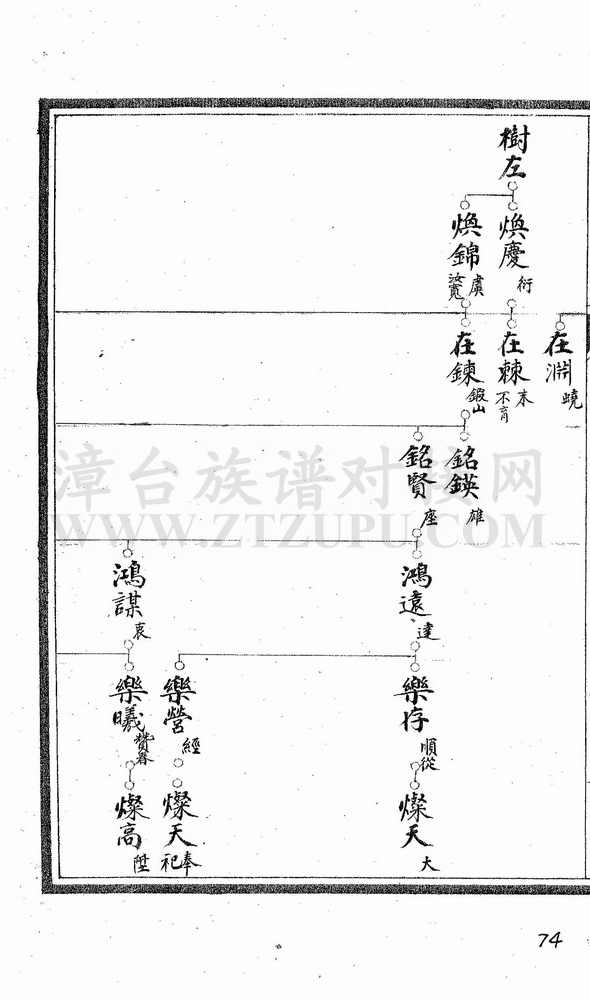 樹左
煥慶
衍
煥錦
虞
汝寬
在淵
蟯
在棘
末
不育
在鍊
鍜山
銘鍈
雄
銘賢
座
鴻遠
達
鴻謀
衷
樂存
順從
樂營
經
樂曦
燦天
大
燦天
奉祀
燦高
陞
漳台族谱对接网
WWW.ZTZUPU.COM
74